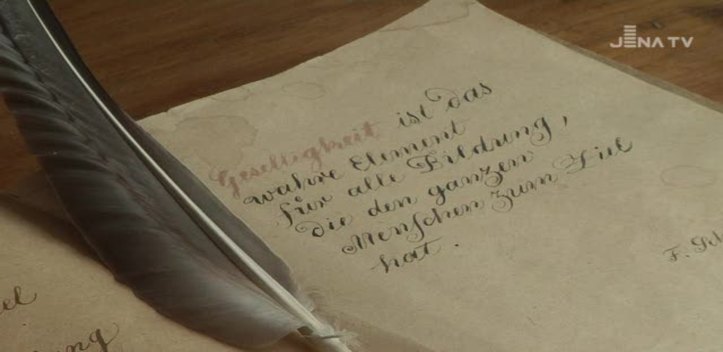 JENA TV
Geselligkeit ist das
wahre Element
für alle Bildung,
die den ganzen
Menschen zum Ziel
hat.
F. Sch
el
ung